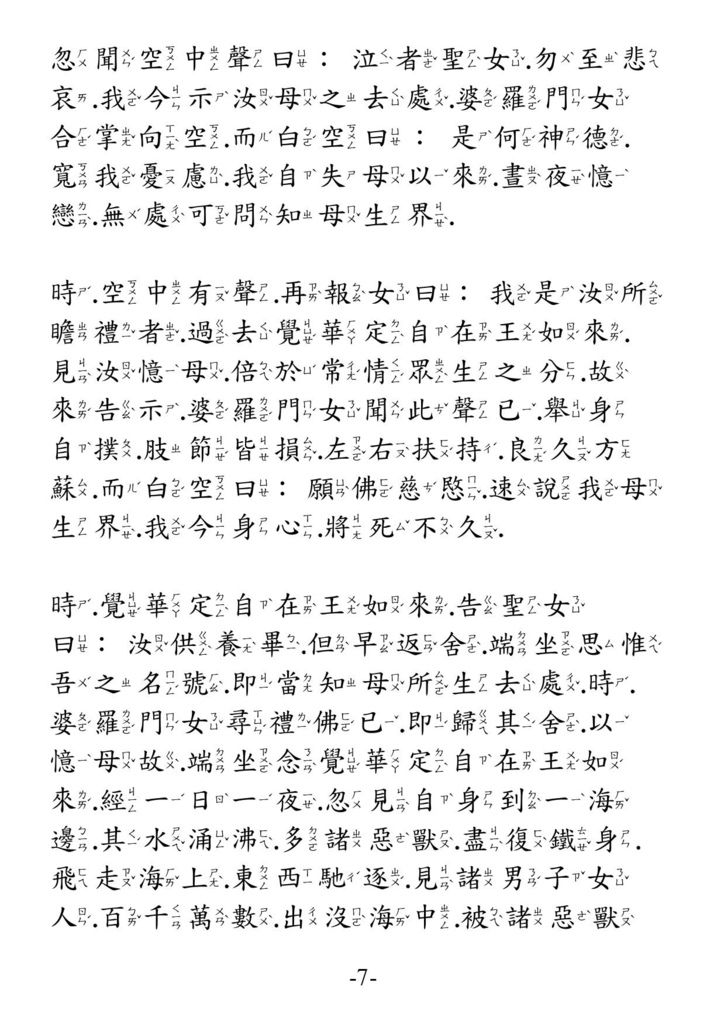 忽聞空中聲曰： 泣者聖女.勿至悲
哀.我今示汝母之去處.婆羅門女
合掌向空.而白空曰： 是何神德.
寬我憂慮.我自失母以來.晝夜憶
戀.無處可問知母生界.
時.空中有聲.再報女曰： 我是汝所
瞻禮者.過去覺華定自在王如來.
見汝憶母.倍於常情眾生之分.故
來告示.婆羅門女聞此聲已.舉身
自撲.肢節皆損.左右扶持.良久方
蘇.而白空曰： 願佛慈愍.速說我母
生界.我今身心.將死不久.
時.覺華定自在王如來.告聖女
曰： 汝供養畢.但早返舍.端坐思惟
吾之名號.即當知母所生去處.時.
婆羅門女尋禮佛已.即歸其舍.以
憶母故.端坐念覺華定自在王如
來.經一日一夜.忽見自身到一海
邊.其水涌沸.多諸惡獸.盡復鐵身.
飛走海上.東西馳逐.見諸男子女
人.百千萬數.出沒海中.被諸惡獸
-7-